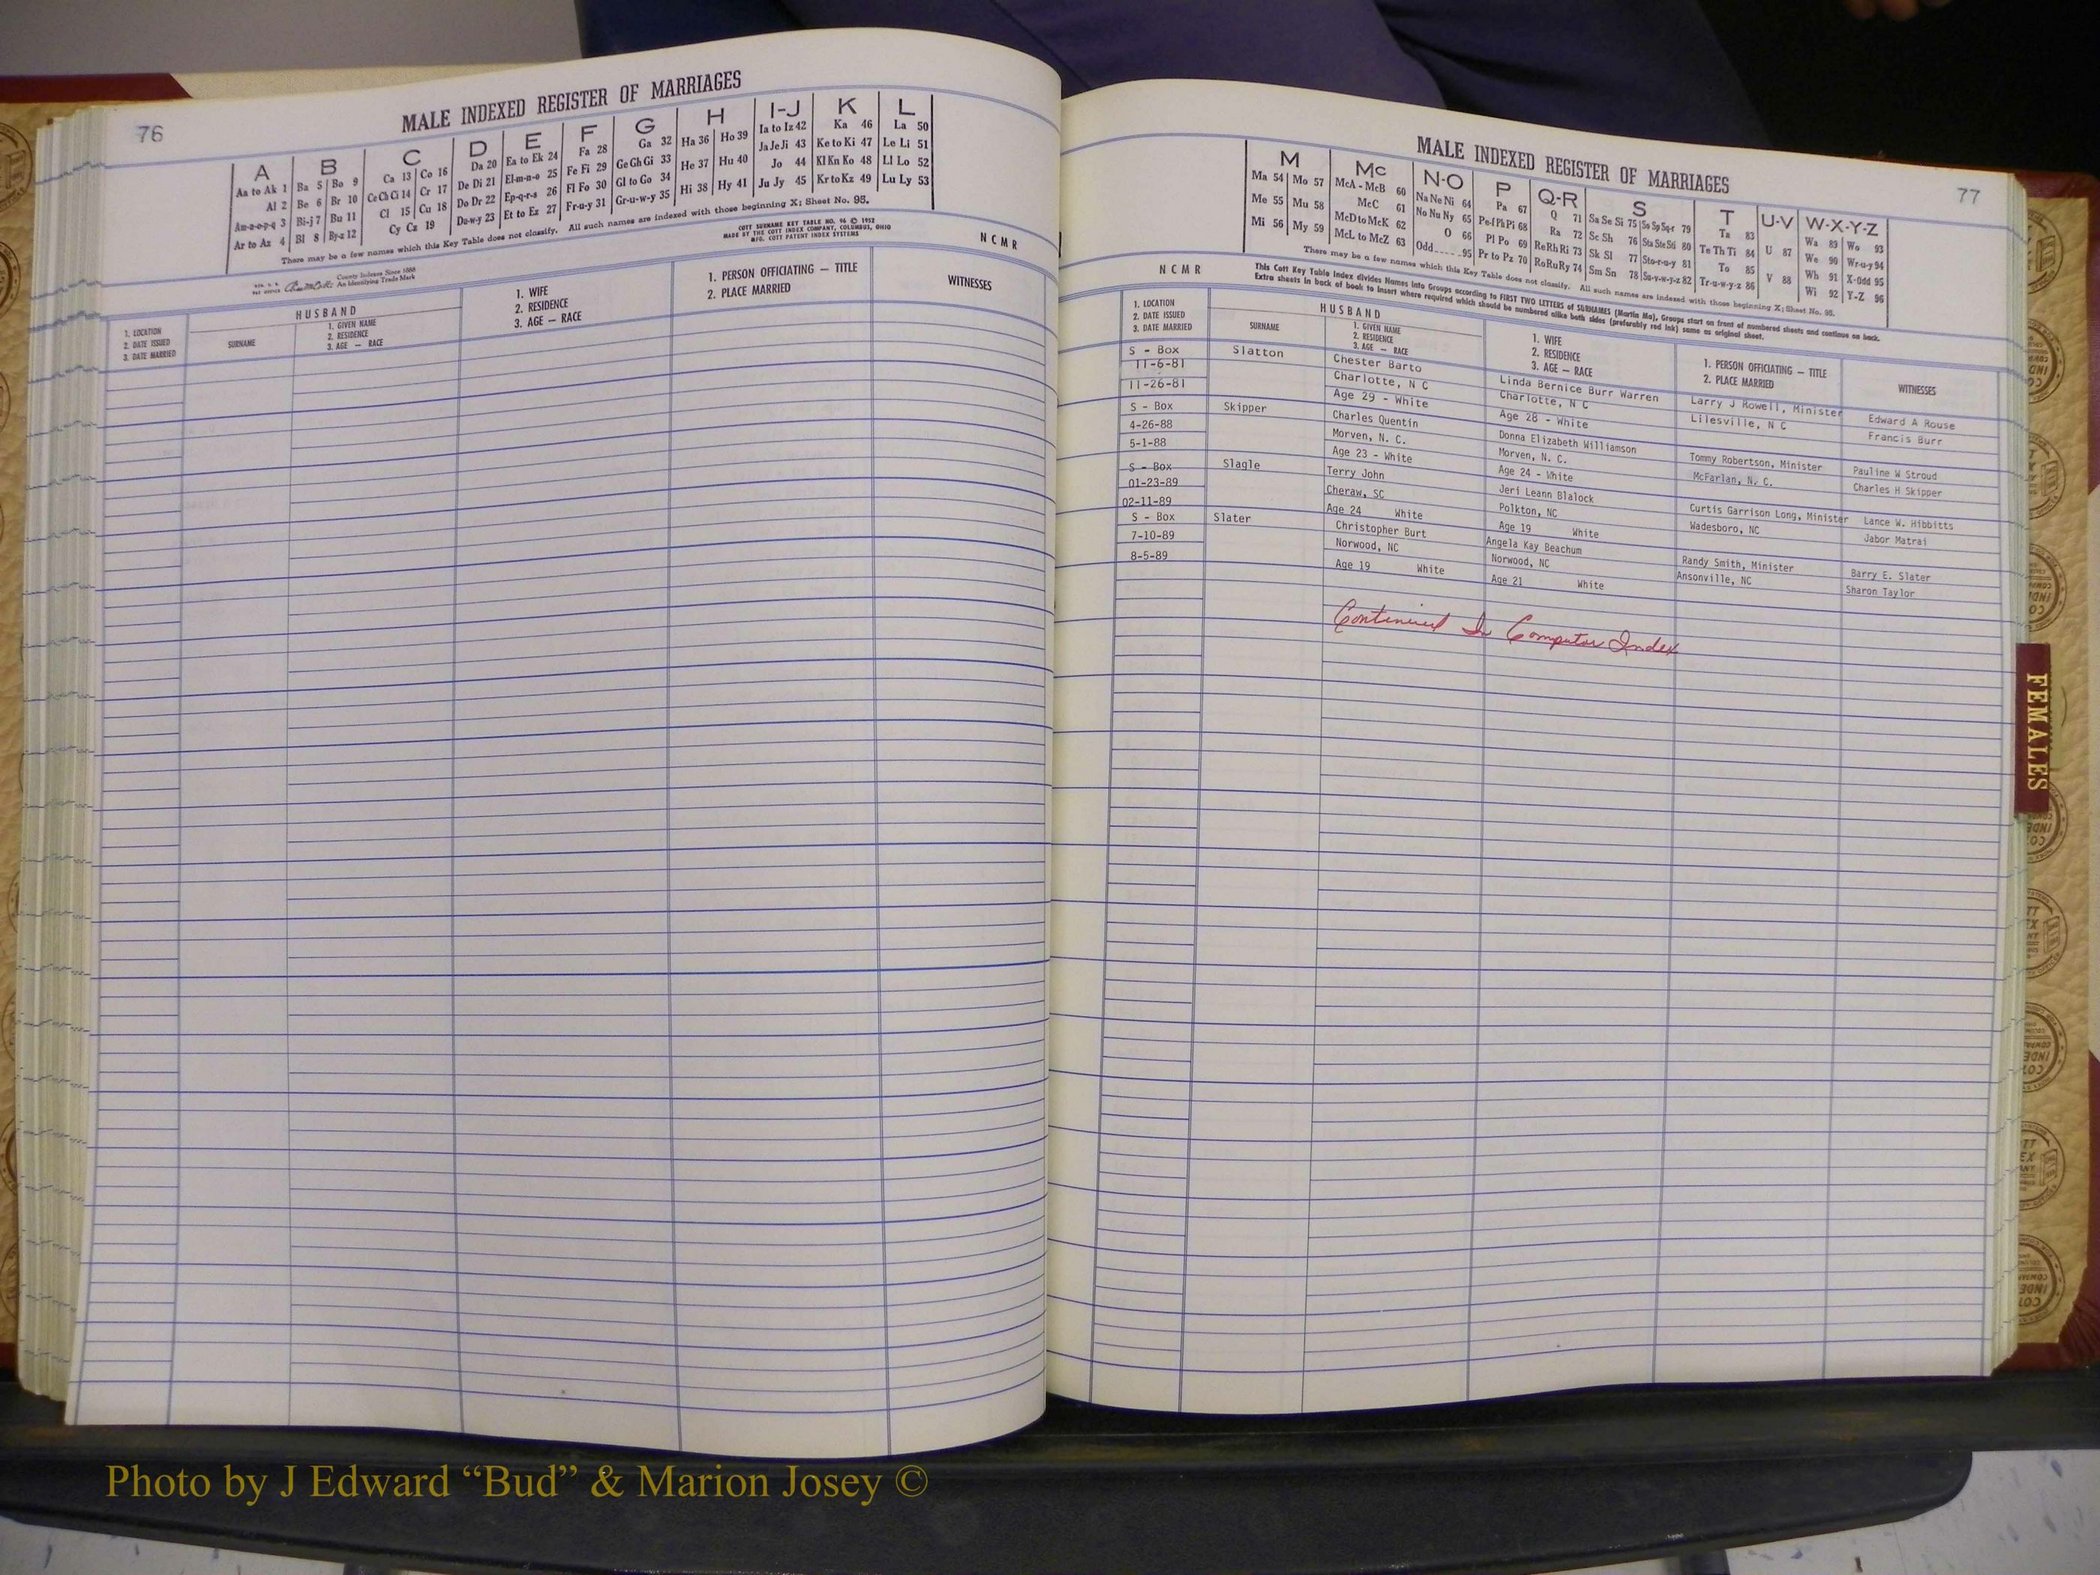 76
MALE INDEXED REGISTER OF MARRIAGES
A B C D E F G H I-J K L
Aa to Ak 1 Ba 5 Bo 9 Ca 13 Co 16 Da 20 Ea to Ek 24 Fa 28 Ga 32 Ha 36 Ho 39 Ia to Iz 42 Ka 46 La 50
Al 2 Be 6 Br 10 Ce Ch Ci 14 Cr 17 De Di 21 El-m-n-o 25 Fe Fi 29 Ge Gh Gi 33 He 37 Hu 40 Ja Je Ji 43 Ke to Ki 47 Le Li 51
Am-n-o-p-q 3 Bi-j 7 Bu 11 Cl 15 Cu 18 Do Dr 22 Ep-q-r-s 26 Fl Fo 30 Gl to Go 34 Hi 38 Hy 41 Jo 44 Kl Kn Ko 48 Ll Lo 52
Ar to Az 4 Bl 8 By-z 12 Cy Cz 19 Du-w-y 23 Et to Ez 27 Fr-u-y 31 Gr-u-w-y 35 Ju Jy 45 Kr to Kz 49 Lu Ly 53
There may be a few names which this Key Table does not classify. All such names are indexed with those beginning X; Sheet No. 95.
COTT SURNAME KEY TABLE NO. 96 © 1952
MADE BY THE COTT INDEX COMPANY, COLUMBUS, OHIO
MFG. COTT PATENT INDEX SYSTEMS
N C M R
County Indexes Since 1888
An Identifying Trade Mark
HUSBAND
1. LOCATION
2. DATE ISSUED
3. DATE MARRIED
SURNAME
1. GIVEN NAME
2. RESIDENCE
3. AGE — RACE
1. WIFE
2. RESIDENCE
3. AGE — RACE
1. PERSON OFFICIATING — TITLE
2. PLACE MARRIED
WITNESSES
MALE INDEXED REGISTER OF MARRIAGES
77
M Mc N-O P Q-R S T U-V W-X-Y-Z
Ma 54 Mo 57 McA - McB 60 Na Ne Ni 64 Pa 67 Q 71 Sa Se Si 75 So Sp Sq-r 79 Ta 83 U 87 Wa 89 Wo 93
Me 55 Mu 58 McC 61 No Nu Ny 65 Pe-f Ph Pi 68 Ra 72 Sc Sh 76 Sta Ste Sti 80 Te Th Ti 84 V 88 We 90 Wr-u-y 94
Mi 56 My 59 McD to McK 62 O 66 Pl Po 69 Re Rh Ri 73 Sk Sl 77 Sto-r-u-y 81 To 85 Wh 91 X-Odd 95
McL to McZ 63 Odd 95 Pr to Pz 70 Ro Ru Ry 74 Sm Sn 78 Su-v-w-y-z 82 Tr-u-w-y-z 86 Wi 92 Y-Z 96
There may be a few names which this Key Table does not classify. All such names are indexed with those beginning X; Sheet No. 95.
N C M R
This Cott Key Table Index divides Names into Groups according to FIRST TWO LETTERS of SURNAMES (Martin Ma), Groups start on front of numbered sheets and continue on back.
Extra sheets in back of book to insert where required which should be numbered alike both sides (preferably red ink) same as original sheet.
HUSBAND
1. LOCATION
2. DATE ISSUED
3. DATE MARRIED
SURNAME
1. GIVEN NAME
2. RESIDENCE
3. AGE — RACE
1. WIFE
2. RESIDENCE
3. AGE — RACE
1. PERSON OFFICIATING — TITLE
2. PLACE MARRIED
WITNESSES
S - Box Slatton Chester Barto Linda Bernice Burr Warren Larry J Rowell, Minister Edward A Rouse
11-6-81 Charlotte, N C Charlotte, N C Lilesville, N C Francis Burr
11-26-81 Age 29 - White Age 28 - White
S - Box Skipper Charles Quentin Donna Elizabeth Williamson Tommy Robertson, Minister Pauline W Stroud
4-26-88 Morven, N. C. Morven, N. C. McFarlan, N. C. Charles H Skipper
5-1-88 Age 23 - White Age 24 - White
S - Box Slagle Terry John Jeri Leann Blalock Curtis Garrison Long, Minister Lance W. Hibbitts
01-23-89 Cheraw, SC Polkton, NC Wadesboro, NC Jabor Matrai
02-11-89 Age 24 White Age 19 White
S - Box Slater Christopher Burt Angela Kay Beachum Randy Smith, Minister Barry E. Slater
7-10-89 Norwood, NC Norwood, NC Ansonville, NC Sharon Taylor
8-5-89 Age 19 White Age 21 White
Continued In Computer Index
FEMALES
Photo by J Edward “Bud” & Marion Josey ©